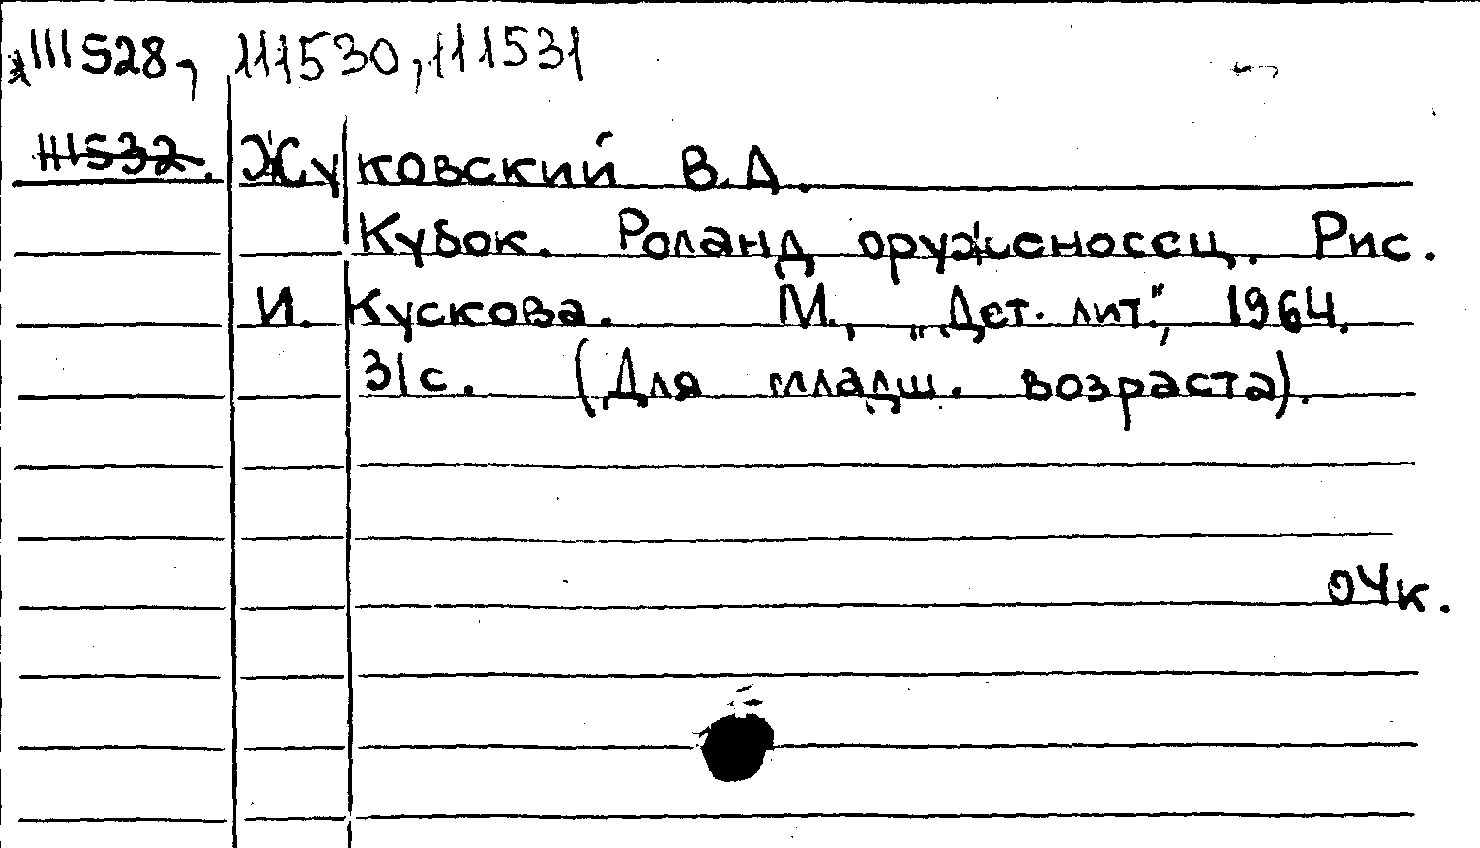 111528, 111530, 111531
111532. Жуковский В.А.
Кубок. Роланд оруженосец. Рис.
И. Кускова. М., „Дет. лит.", 1964.
31с. (Для младш. возраста).
04к.